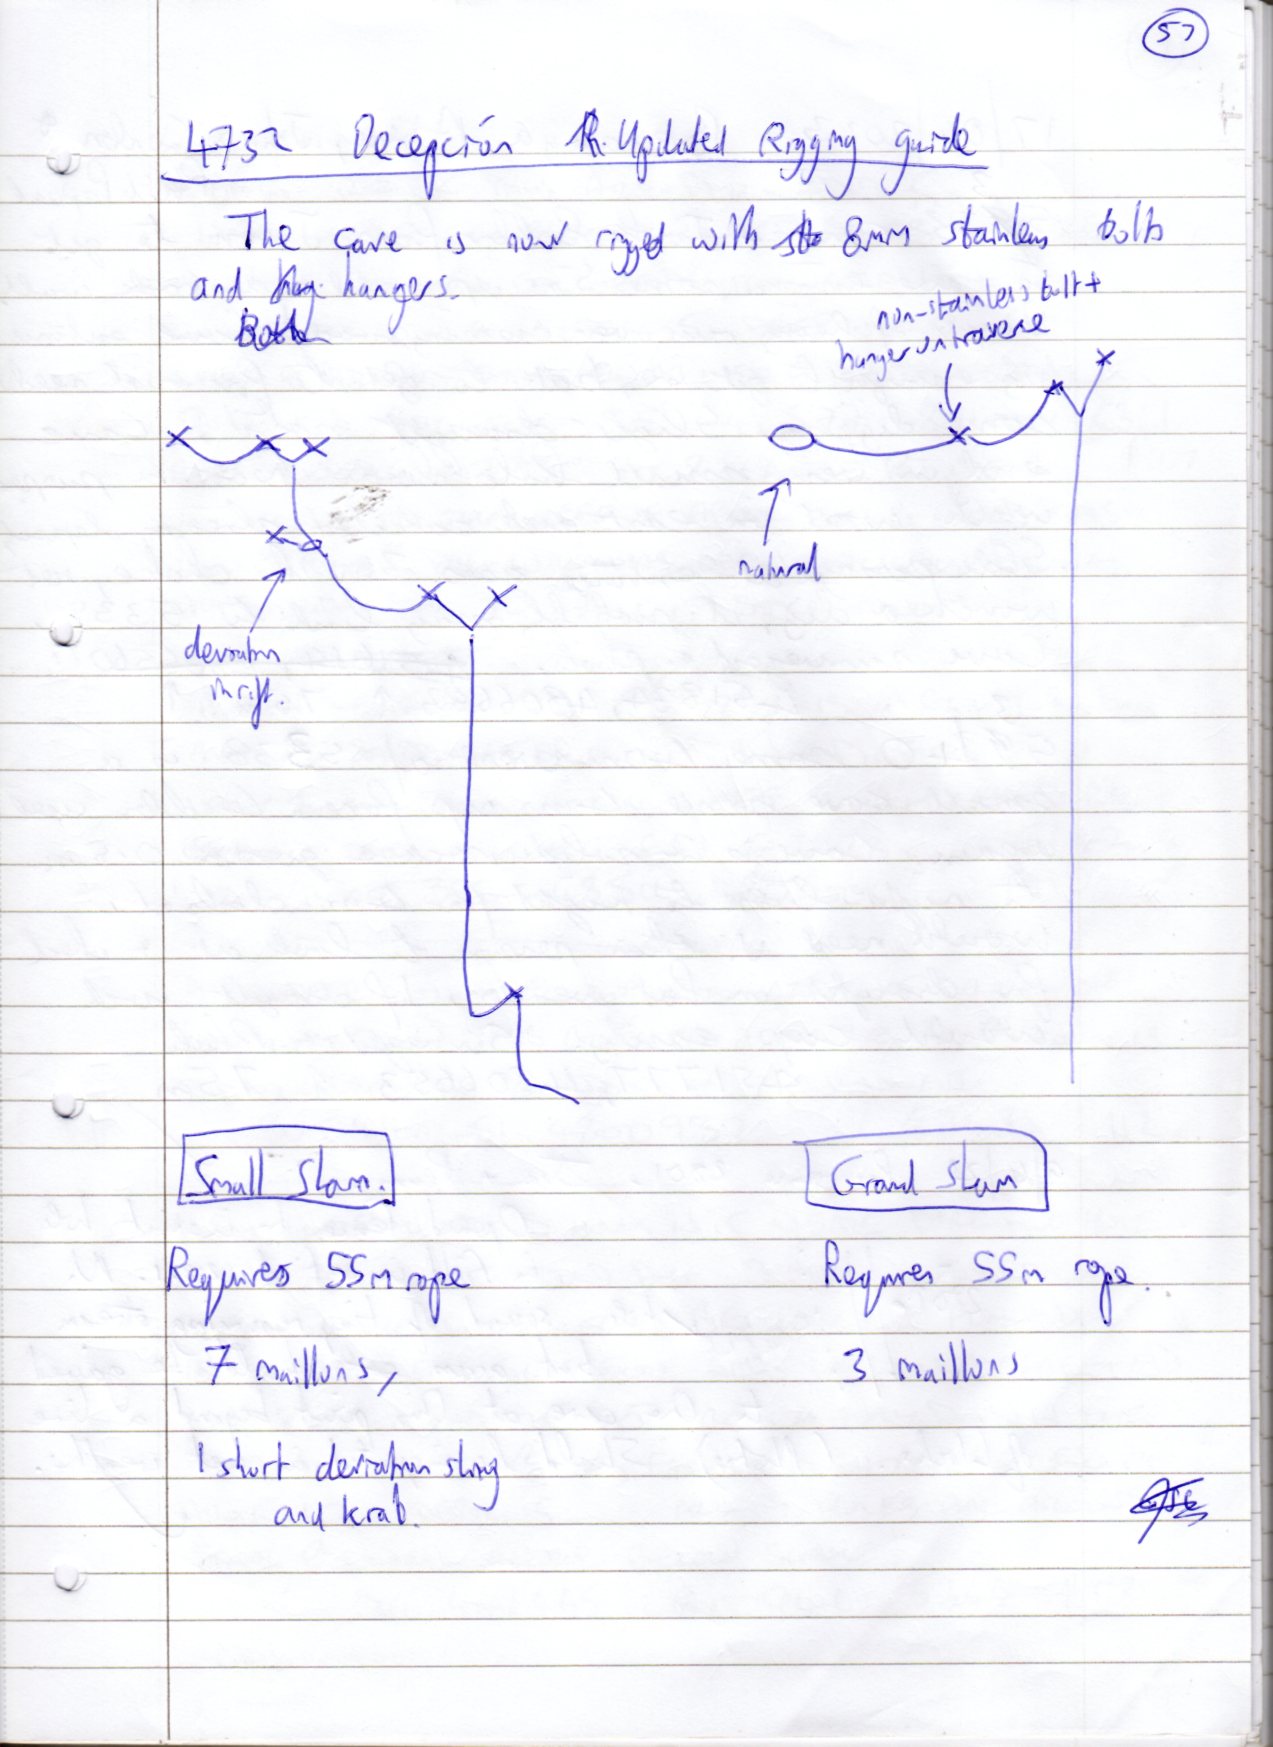 57
4732 Decepción Updated Rigging guide
The cave is now rigged with 8mm stainless bolts
and hangers.
non-stainless bolt +
hanger on traverse
natural
deviation
in rift.
Small Slam.
Grand Slam
Requires 55m rope
Requires 55m rope.
7 maillons,
3 maillons
1 short deviation sling
and krab.